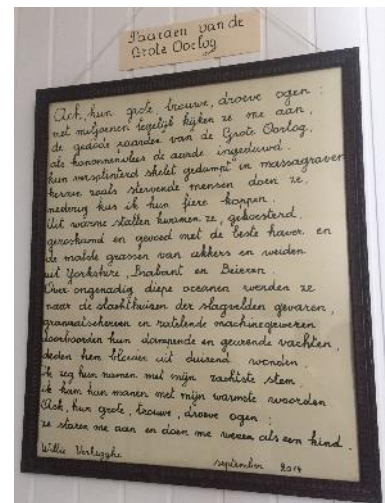 Paarden van de
Grote Oorlog
Ach, hun grote, trouwe, droeve ogen :
met miljoenen tegelijk kijken ze me aan,
de gedode paarden van de Grote Oorlog,
als kanonnenvlees de aarde ingeduwd.
hun versplinterd skelet gedumpt in massagraven
kermen zoals stervende mensen doen ze,
nederig kus ik hun fiere koppen.
Uit warme stallen kwamen ze, gekoesterd,
geroskamd en gevoed met de beste haver en
de malste grassen van akkers en weiden
uit Yorkshire, Brabant en Beieren.
Over ongenadig diepe oceanen werden ze
naar de slachthuizen der slagvelden gevaren,
granaatscherven en ratelende machinegeweren
doorboorden hun dampende en geurende vachten,
deden hen bloeden uit duizend wonden.
ik zeg hun namen met mijn zachtste stem,
ik kam hun manen met mijn warmste woorden
Ach, hun grote, trouwe, droeve ogen :
ze staren me aan en doen me wenen als een kind.
Willie Verhegghe
september 2014